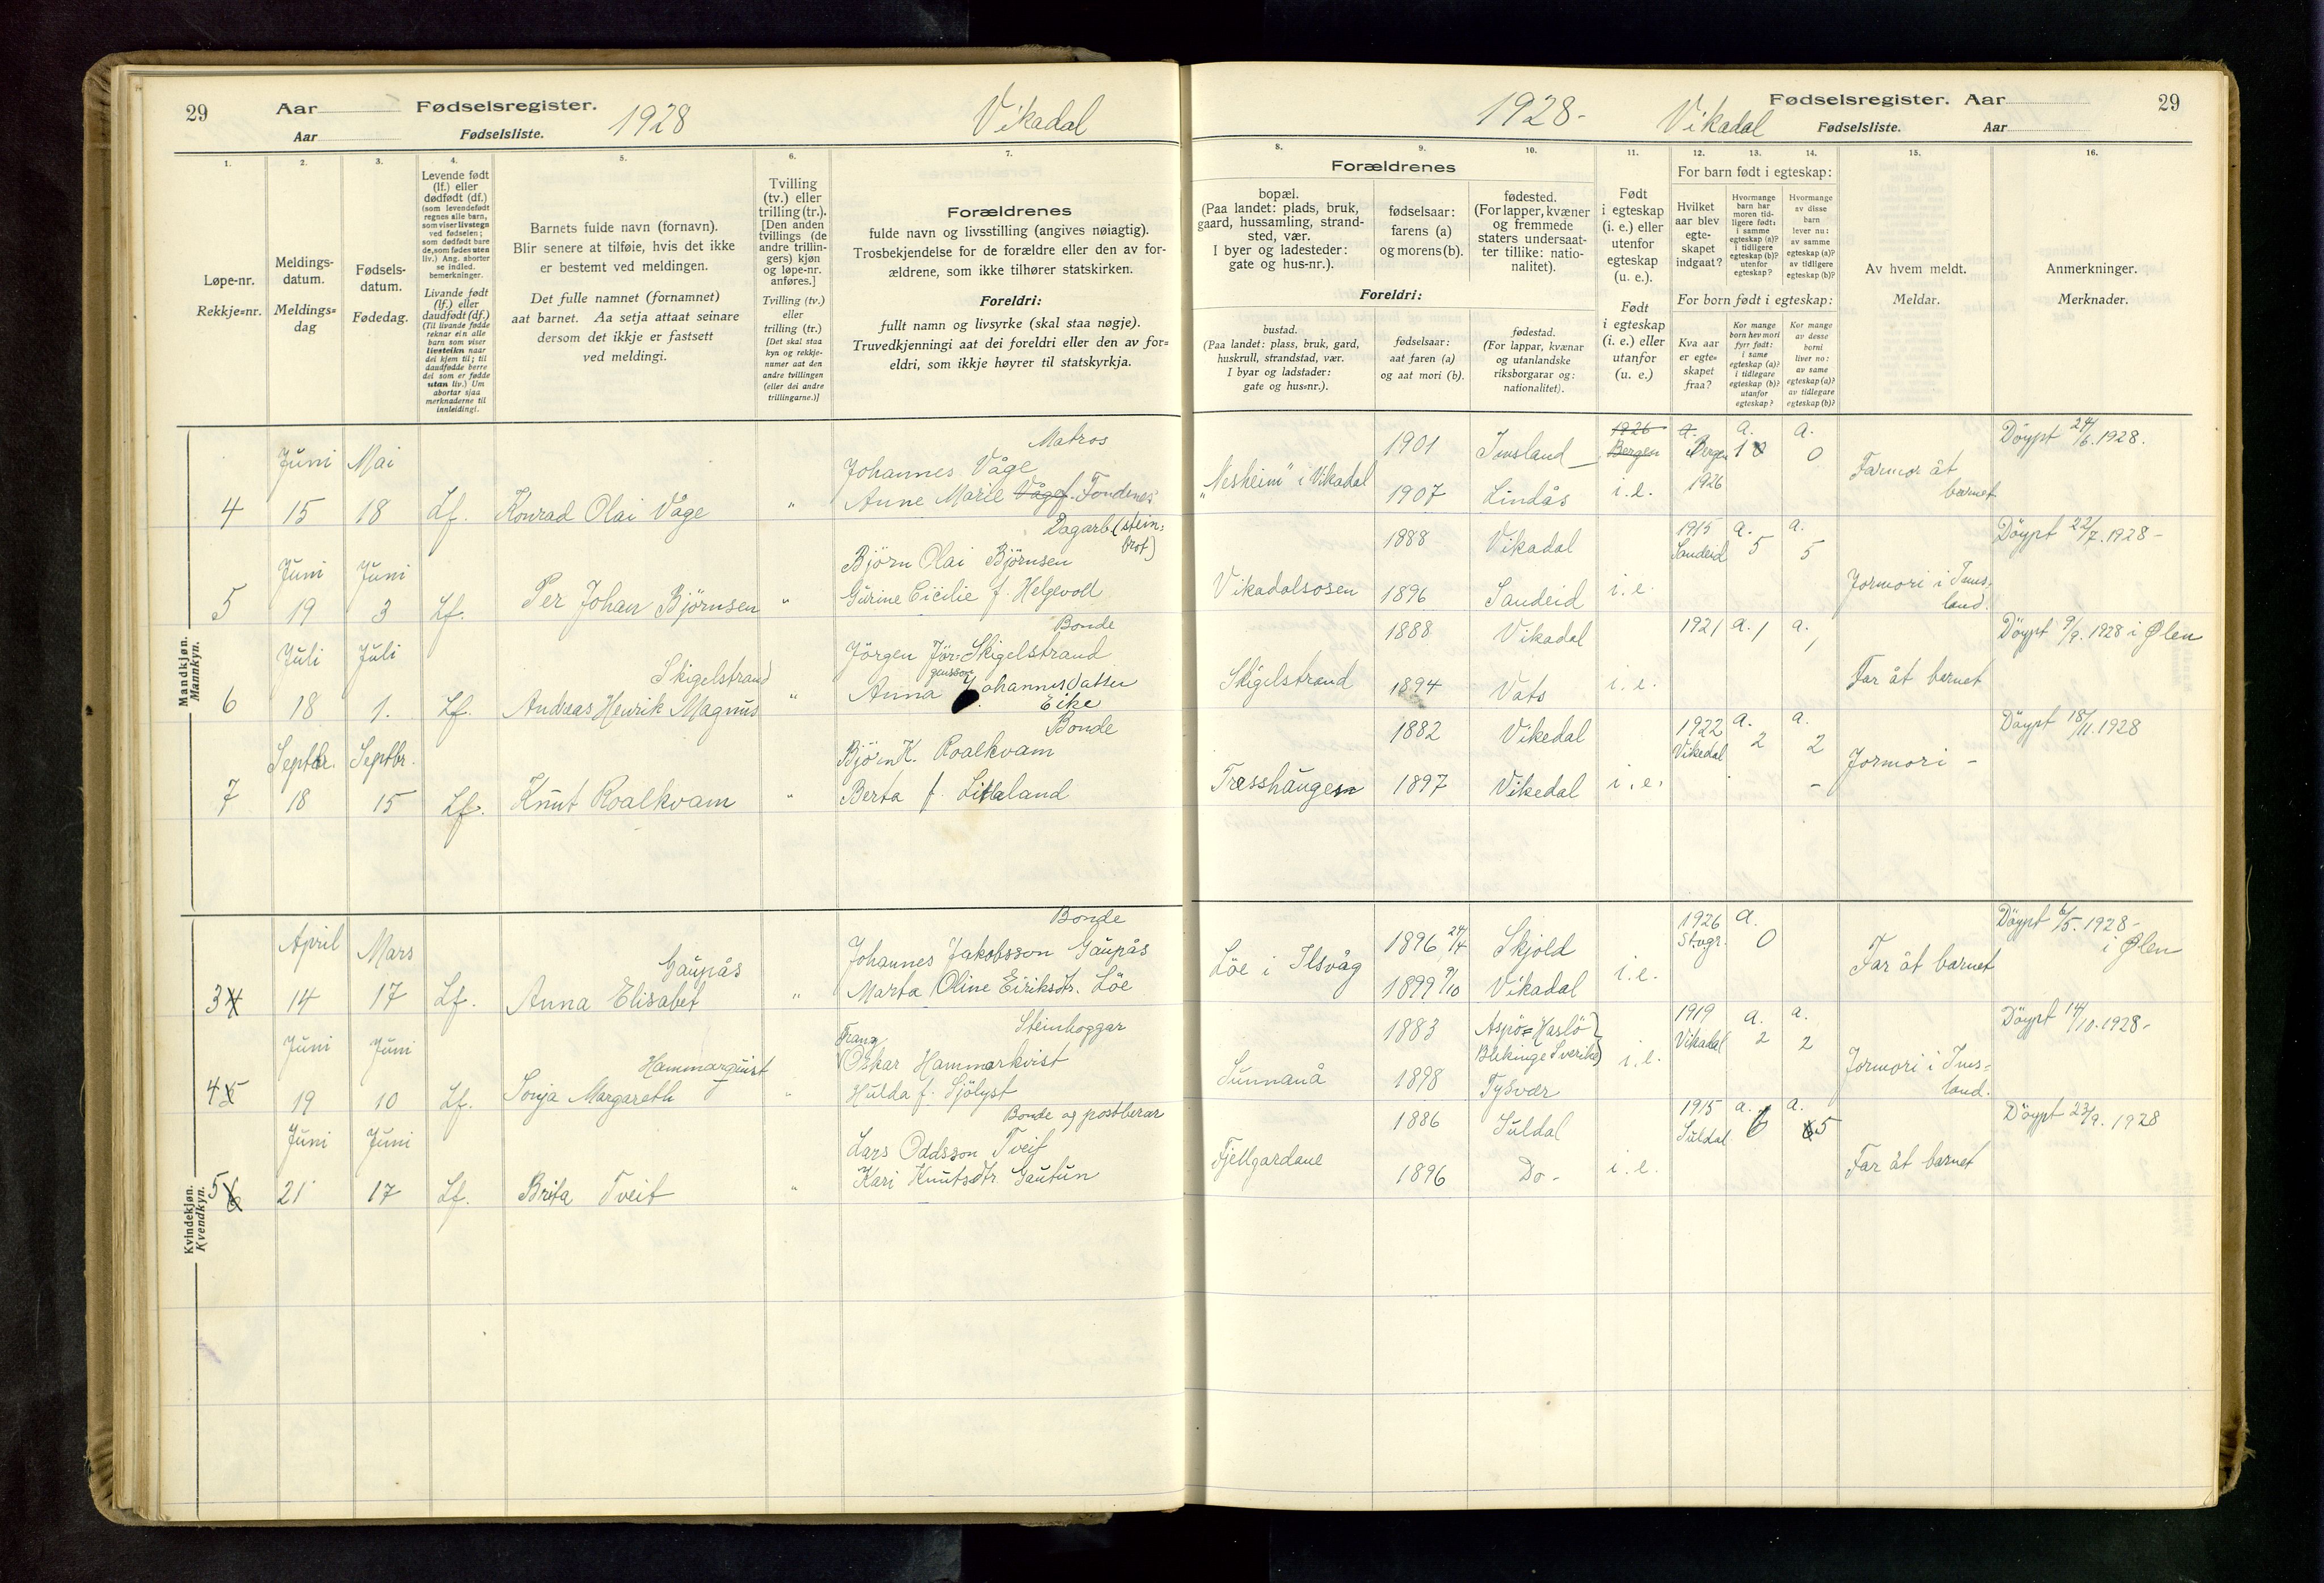 29 Aar Fødselsregister. 1928 Vikadal
Aar Fødselsliste.
1. 2. 3. 4. 5. 6. 7.
Løpe-nr.
Rekkje=nr.
Meldings-
datum.
Meldings=
dag
Fødsels-
datum.
Fødedag.
Levende født
(lf.) eller
dødfødt (df.)
(som levendefødt
regnes alle barn,
som viser livstegn
ved fødselen;
som dødfødt bare
de, som fødes uten
liv.) Ang. aborter
se indled.
bemerkninger.
Livande født
(lf.) eller
daudfødt (df.)
(Til livande fødde
reknar ein alle
barn som viser
livsteikn naar
dei kjem til; til
daudfødde berre
dei som er fødde
utan liv.) Um
abortar sjaa
merknaderne til
innleidingi.
Barnets fulde navn (fornavn).
Blir senere at tilføie, hvis det ikke
er bestemt ved meldingen.
Det fulle namnet (fornamnet)
aat barnet. Aa setja attaat seinare
dersom det ikkje er fastsett
ved meldingi.
Tvilling
(tv.) eller
trilling (tr.).
[Den anden
tvillings (de
andre trillin-
gers) kjøn
og løpe-nr.
anføres.]
Tvilling (tv.)
eller
trilling (tr.)
[Det skal staa
kyn og rekkje-
numer aat den
andre tvillingen
(eller dei andre
trillingarne.)]
Forældrenes
fulde navn og livsstilling (angives nøiagtig).
Trosbekjendelse for de forældre eller den av for-
ældrene, som ikke tilhører statskirken.
Foreldri:
fullt namn og livsyrke (skal staa nøgje).
Truvedkjenningi aat dei foreldri eller den av for=
eldri, som ikkje høyrer til statskyrkja.
Mandkjøn.
Mannkyn.
Matros
Juni Mai Johannes Våge
4 15 18 Lf. Konrad Olai Våge " Anne Marie Våge f. Fondenes
Dagarb. (stein=
brot)
Juni Juni Bjørn Olai Bjørnsen
5 19 3 Lf. Per Johan Bjørnsen " Gurine Cicilie f. Helgevold
Bonde
Juli Juli Skigelstrand Jörgen Jör= Skigelstrand
gensson
6 18 1. Lf. Andreas Henrik Magnus " Anna Johannesdatter
Eike
Bonde
Septbr. Septbr. Bjørn K. Roalkvam
7 18 15 Lf. Knut Roalkvam " Berta f. Litlaland
Kvindekjøn.
Kvendkyn.
Bonde
April Mars Gaupås Johannes Jakobsson Gaupås
3 4 14 17 Lf. Anna Elisabet " Marta Oline Eiriksdtr. Löe
Steinhoggar
Franz
Juni Juni Hammarquist Oskar Hammarkvist
4 5 19 10 Lf. Sonja Margareth " Hulda f. Sjölyst
Bonde og postberar
Juni Juni Lars Oddsson Tveit
5 6 21 17 Lf. Brita Tveit " Kari Knutsdtr. Gautun
1928- Vikadal Fødselsregister. Aar 29
Fødselsliste. Aar
8. 9. 10. 11. 12. 13. 14. 15. 16.
Forældrenes
bopæl.
(Paa landet: plads, bruk,
gaard, hussamling, strand-
sted, vær.
I byer og ladesteder:
gate og hus-nr.).
fødselsaar:
farens (a)
og morens (b).
fødested.
(For lapper, kvæner
og fremmede
staters undersaat-
ter tillike: natio-
nalitet).
Foreldri:
bustad.
(Paa landet: plass, bruk, gard,
huskrull, strandstad, vær.
I byar og ladstader:
gate og hus=nr.).
fødselsaar:
aat faren (a)
og aat mori (b).
fødestad.
(For lappar, kvænar
og utanlandske
riksborgarar og:
nationalitet).
Født
i egteskap
(i. e.) eller
utenfor
egteskap
(u. e.).
Født
i egteskap
(i. e.) eller
utanfor
(u. e.)
For barn født i egteskap:
Hvilket
aar blev
egte-
skapet
indgaat?
Hvormange
barn har
moren tid-
ligere født:
i samme
egteskap (a)?
i tidligere
egteskap (b)?
utenfor
egteskap?
Hvormange
av disse
barn
lever nu:
av samme
egteskap (a)?
av tidligere
egteskap (b)?
For born født i egteskap:
Kva aar
er egte-
skapet
fraa?
Kor mange
born hev mori
fyrr født:
i same
egteskap (a)?
i tidlegare
egteskap (b)?
utanfor
egteskap?
Kor mange
av desse
borni
liver no:
av same
egteskap (a)?
av tidlegare
egteskap (b)?
Av hvem meldt.
Meldar.
Anmerkninger.
Merknader.
1901 Imsland 1926 a. a. a. Döypt 24/6. 1928.
Bergen Bergen 1 0 0
"Nesheim" i Vikadal 1907 Lindås i.e. 1926 Farmor åt
barnet
1888 Vikadal 1915 a. a. Döypt 22/7. 1928-
Sandeid 5 5
Vikadalsosen 1896 Sandeid i.e. Jormori i Ims=
land.
1888 Vikadal 1921 a. 1 a. 1 Döypt 9/9. 1928 i Ølen
Skigelstrand 1894 Vats i.e. Far åt barnet
1882 Vikedal 1922 a. a. Döypt 18/11. 1928
Vikedal 2 2
Træsshaugen 1897 Vikedal i.e. - Jormori -
1896 24/4 Skjold 1926 a. Döypt 6/5. 1928-
Stvgr. 0 i Ølen
Löe i Ilsvåg 1899 9/10 Vikadal i.e. Far åt barnet
1883 Aspö= Haslö 1919 a. a. Döypt 14/10. 1928-
Blekinge Sverike Vikadal 2 2
Sunnanå 1898 Tysvær i.e. Jormori i Ims=
land.
1886 Suldal 1915 a. a. Döypt 23/9. 1928
Suldal 6 5
Fjellgardane 1896 Do- i.e. Far åt barnet